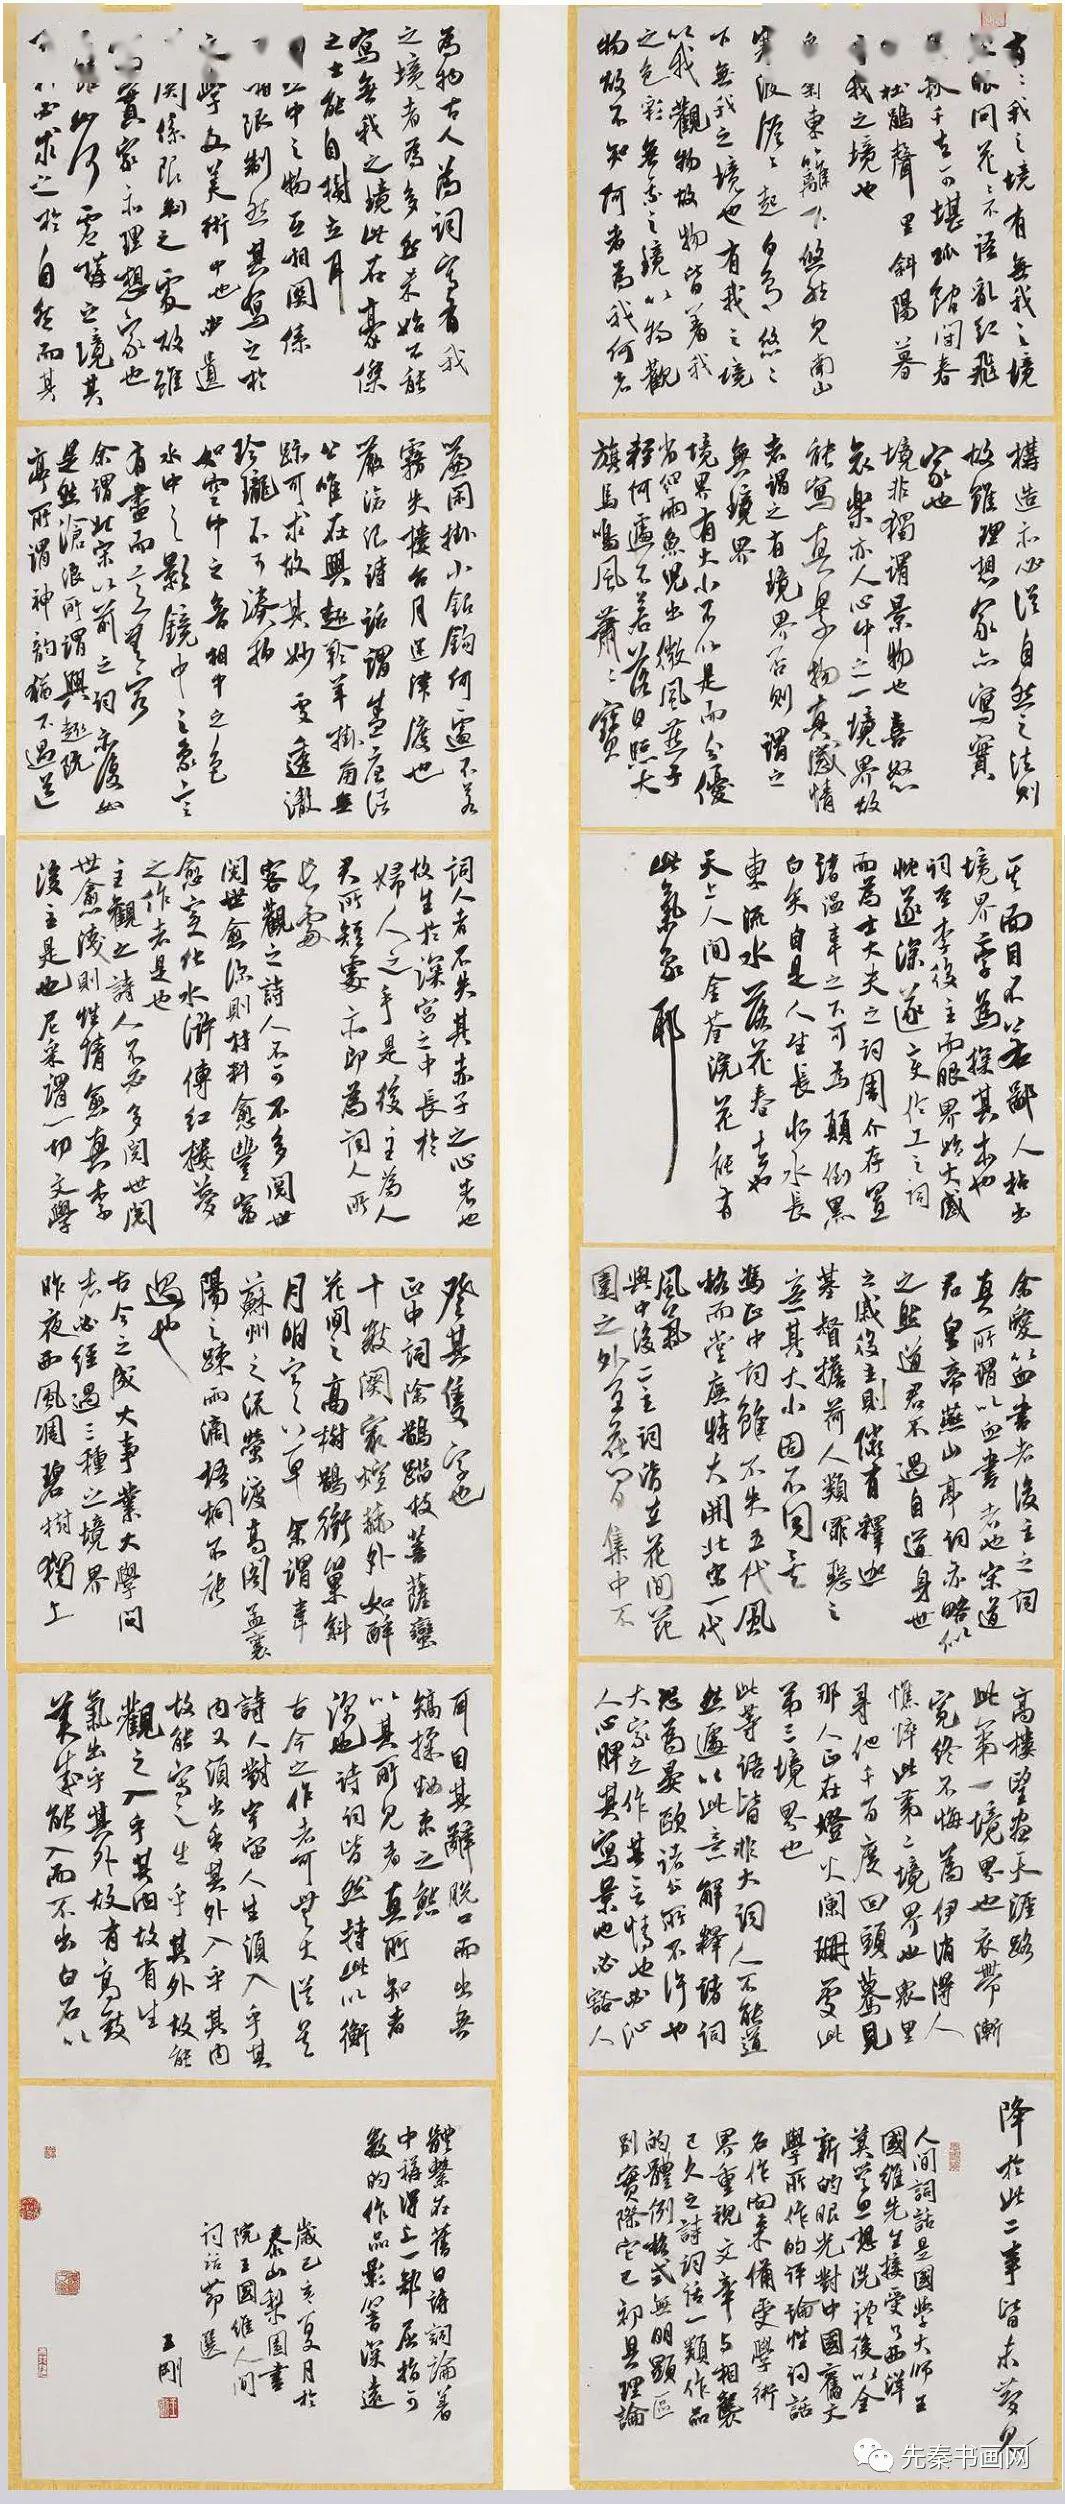 有=我之境有無我之境
眼問花=不語亂紅飛
秋千去可堪孤館閉春
杜鵑聲里斜陽暮
我之境也
東籬下悠然見南山
寒波澹=起白鳥悠=
下無我之境也有我之境
以我觀物故物皆著我
之色彩無我之境以物觀
物故不知何者為我何者
為物古人為詞寫有我
之境者為多然未始不能
寫無我之境此在豪傑
之士能自樹立耳
中之物互相關係
相限制然其寫之於
文學及美術中也必遺
關係限制之處故雖
寫實家亦理想家也
雖如何虛構之境其
必求之於自然而其
構造亦必從自然之法則
故雖理想家亦寫實
家也
境非獨謂景物也喜怒
哀樂亦人心中之一境界故
能寫真景物真感情
者謂之有境界否則謂之
無境界
境界有大小不以是而分優
劣細雨魚兒出微風燕子
斜何遽不若落日照大
旗馬鳴風蕭=寶
簾閑掛小銀鉤何遽不若
霧失樓台月迷津渡也
嚴滄浪詩話謂盛唐諸
公唯在興趣羚羊掛角無
跡可求故其妙處透澈
玲瓏不可湊拍
如空中之音相中之色
水中之影鏡中之象言
有盡而意無窮
余謂北宋以前之詞亦復如
是然滄浪所謂興趣阮
亭所謂神韻猶不過道
其面目不若鄙人拈出
境界二字為探其本也
詞至李後主而眼界始大感
慨遂深遂變伶工之詞
而為士大夫之詞周介存置
諸溫韋之下可為顛倒黑
白矣自是人生長恨水長
東流水落花春去也
天上人間金荃浣花能有
此氣象耶
詞人者不失其赤子之心者也
故生於深宮之中長於
婦人之手是後主為人
君所短處亦即為詞人所
長處
客觀之詩人不可不多閱世
閱世愈深則材料愈豐富
愈變化水滸傳紅樓夢
之作者是也
主觀之詩人不必多閱世閱
世愈淺則性情愈真李
後主是也尼采謂一切文學
余愛以血書者後主之詞
真所謂以血書者也宋道
君皇帝燕山亭詞亦略似
之然道君不過自道身世
之戚後主則儼有釋迦
基督擔荷人類罪惡之
意其大小固不同矣
馮正中詞雖不失五代風
格而堂廡特大開北宋一代
風氣
與中後二主詞皆在花間范
圍之外宜花間集中不
登其隻字也
正中詞除鵲踏枝菩薩蠻
十數闋最煊赫外如醉
花間之高樹鵲銜巢斜
月明寒草余謂韋
蘇州之流螢渡高閣孟襄
陽之疏雨滴梧桐不能
過也
古今之成大事業大學問
者必經過三種之境界
昨夜西風凋碧樹獨上
高樓望盡天涯路
此第一境界也衣帶漸
寬終不悔為伊消得人
憔悴此第二境界也衆里
尋他千百度回頭驀見
那人正在燈火闌珊處此
第三境界也
此等語皆非大詞人不能道
然遽以此意解釋諸詞
恐為晏歐諸公所不許也
大家之作其言情也必沁
人心脾其寫景也必豁人
耳目其辭脫口而出無
矯揉妝束之態
以其所見者真所知者
深也詩詞皆然持此以衡
古今之作者可無大誤矣
詩人對宇宙人生須入乎其
內又須出乎其外入乎其內
故能寫之出乎其外故能
觀之入乎其內故有生
氣出乎其外故有高致
美成能入而不出白石以
降於此二事皆未夢見
人間詞話是國學大師王
國維先生接受了西洋
美學思想洗禮後以全
新的眼光對中國舊文
學所作的評論性詞話
名作向來備受學術
界重視文章與相襲
已久之詩詞話一類作品
的體例格式無明顯區
別實際它已初具理論
體系在舊日詩詞論著
中稱得上一部屈指可
數的作品影響深遠
歲己亥夏月於
泰山梨園書
院王國維人間
詞話節選
王剛
先秦书画网